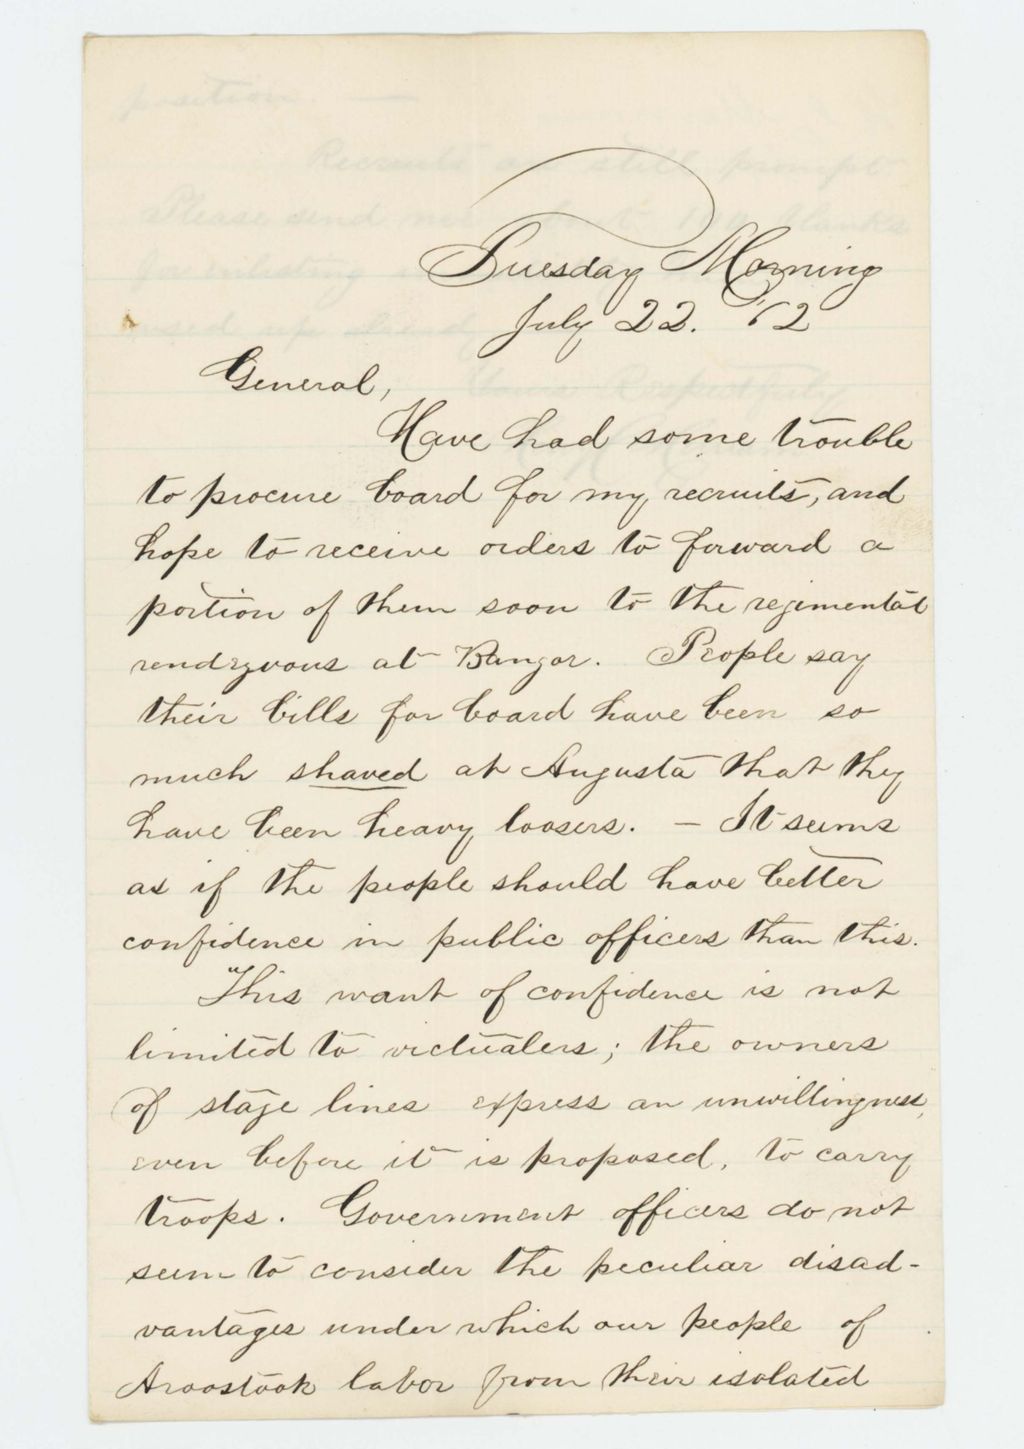 Tuesday Morning
July 22. '62
General,
Have had some trouble
to procure board for my recruits, and
hope to receive orders to forward a
portion of them soon to the regimental
rendzvous at Bangor. People say
their bills for board have been so
much shaved at Augusta that they
have been heavy loosers. — It seems
as if the people should have better
confidence in public officers than this.
This want of confidence is not
limited to victualers; the owners
of stage lines express an unwillingness,
even before it is proposed, to carry
troops. Government officers do not
seem to consider the peculiar disad-
vantages under which our people of
Aroostook labor from their isolated